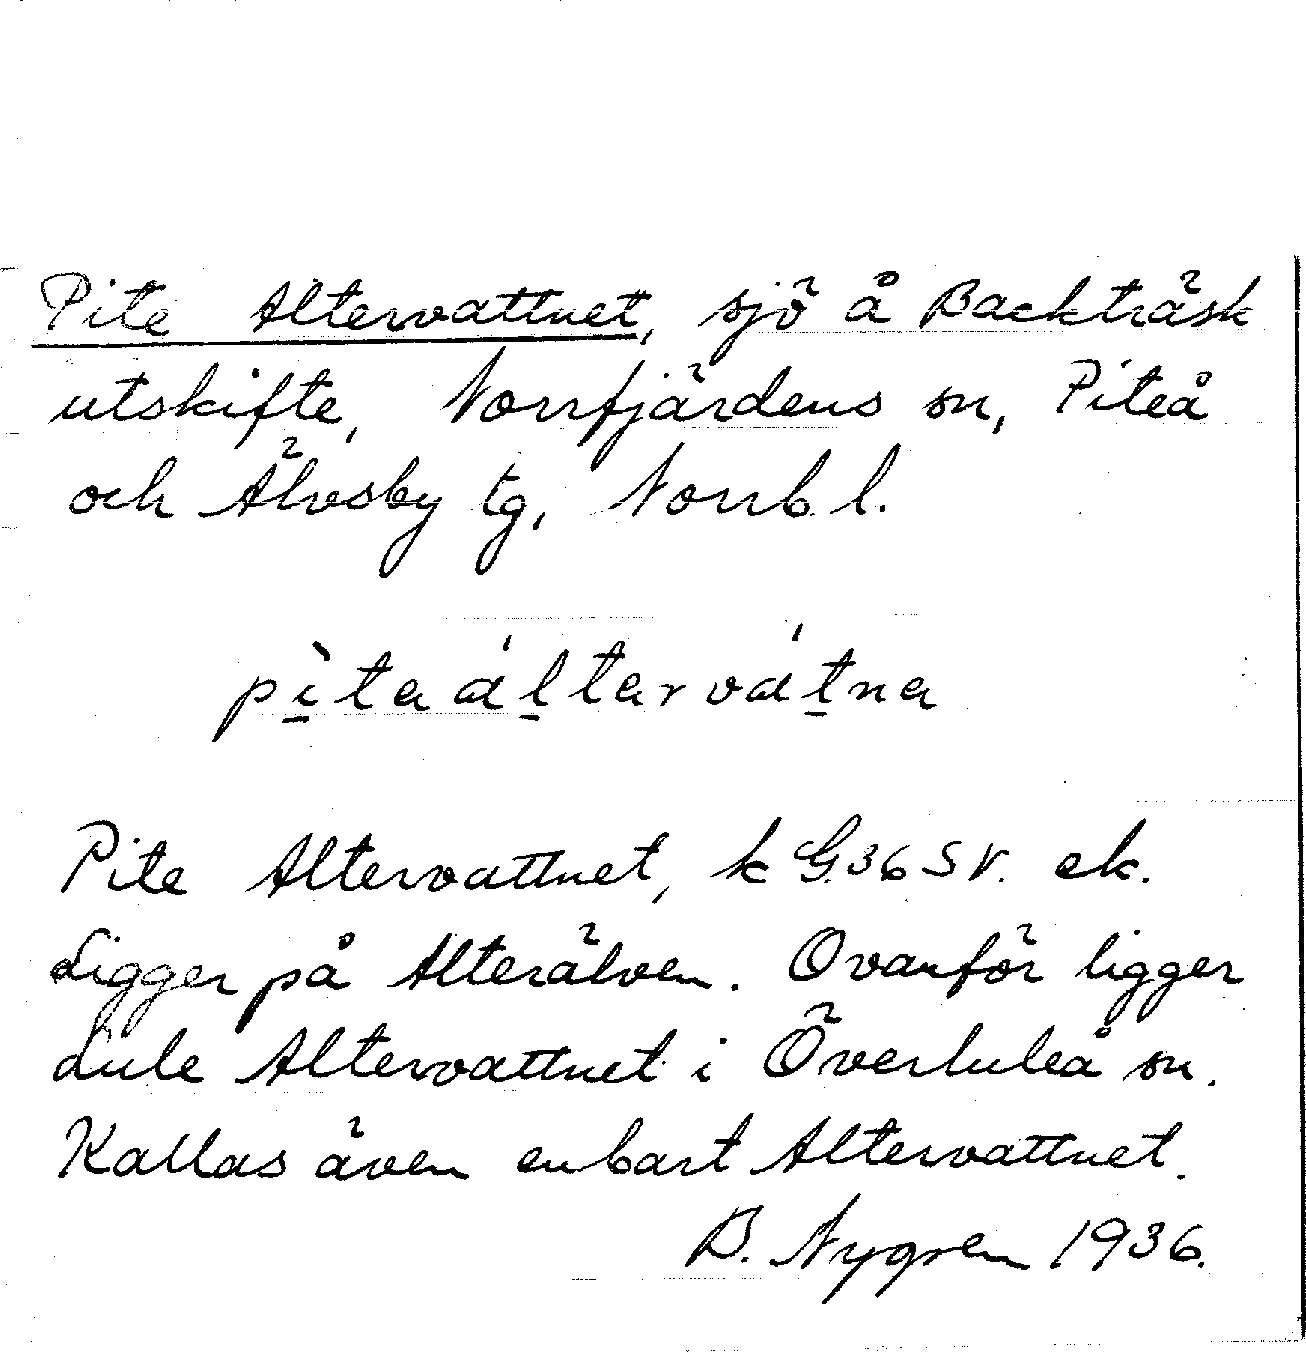 Pite Altervattnet, sjö å Backträsk
utskifte, Norrfjärdens sn, Piteå
och Älvsby tg, Norrb. l.
pìtaáltarvátna
Pite Altervattnet, k G.36 SV. ek.
Ligger på Alterälven. Ovanför ligger
Lule Altervattnet i Överluleå sn.
Kallas även enbart Altervattnet.
B. Nygren 1936.